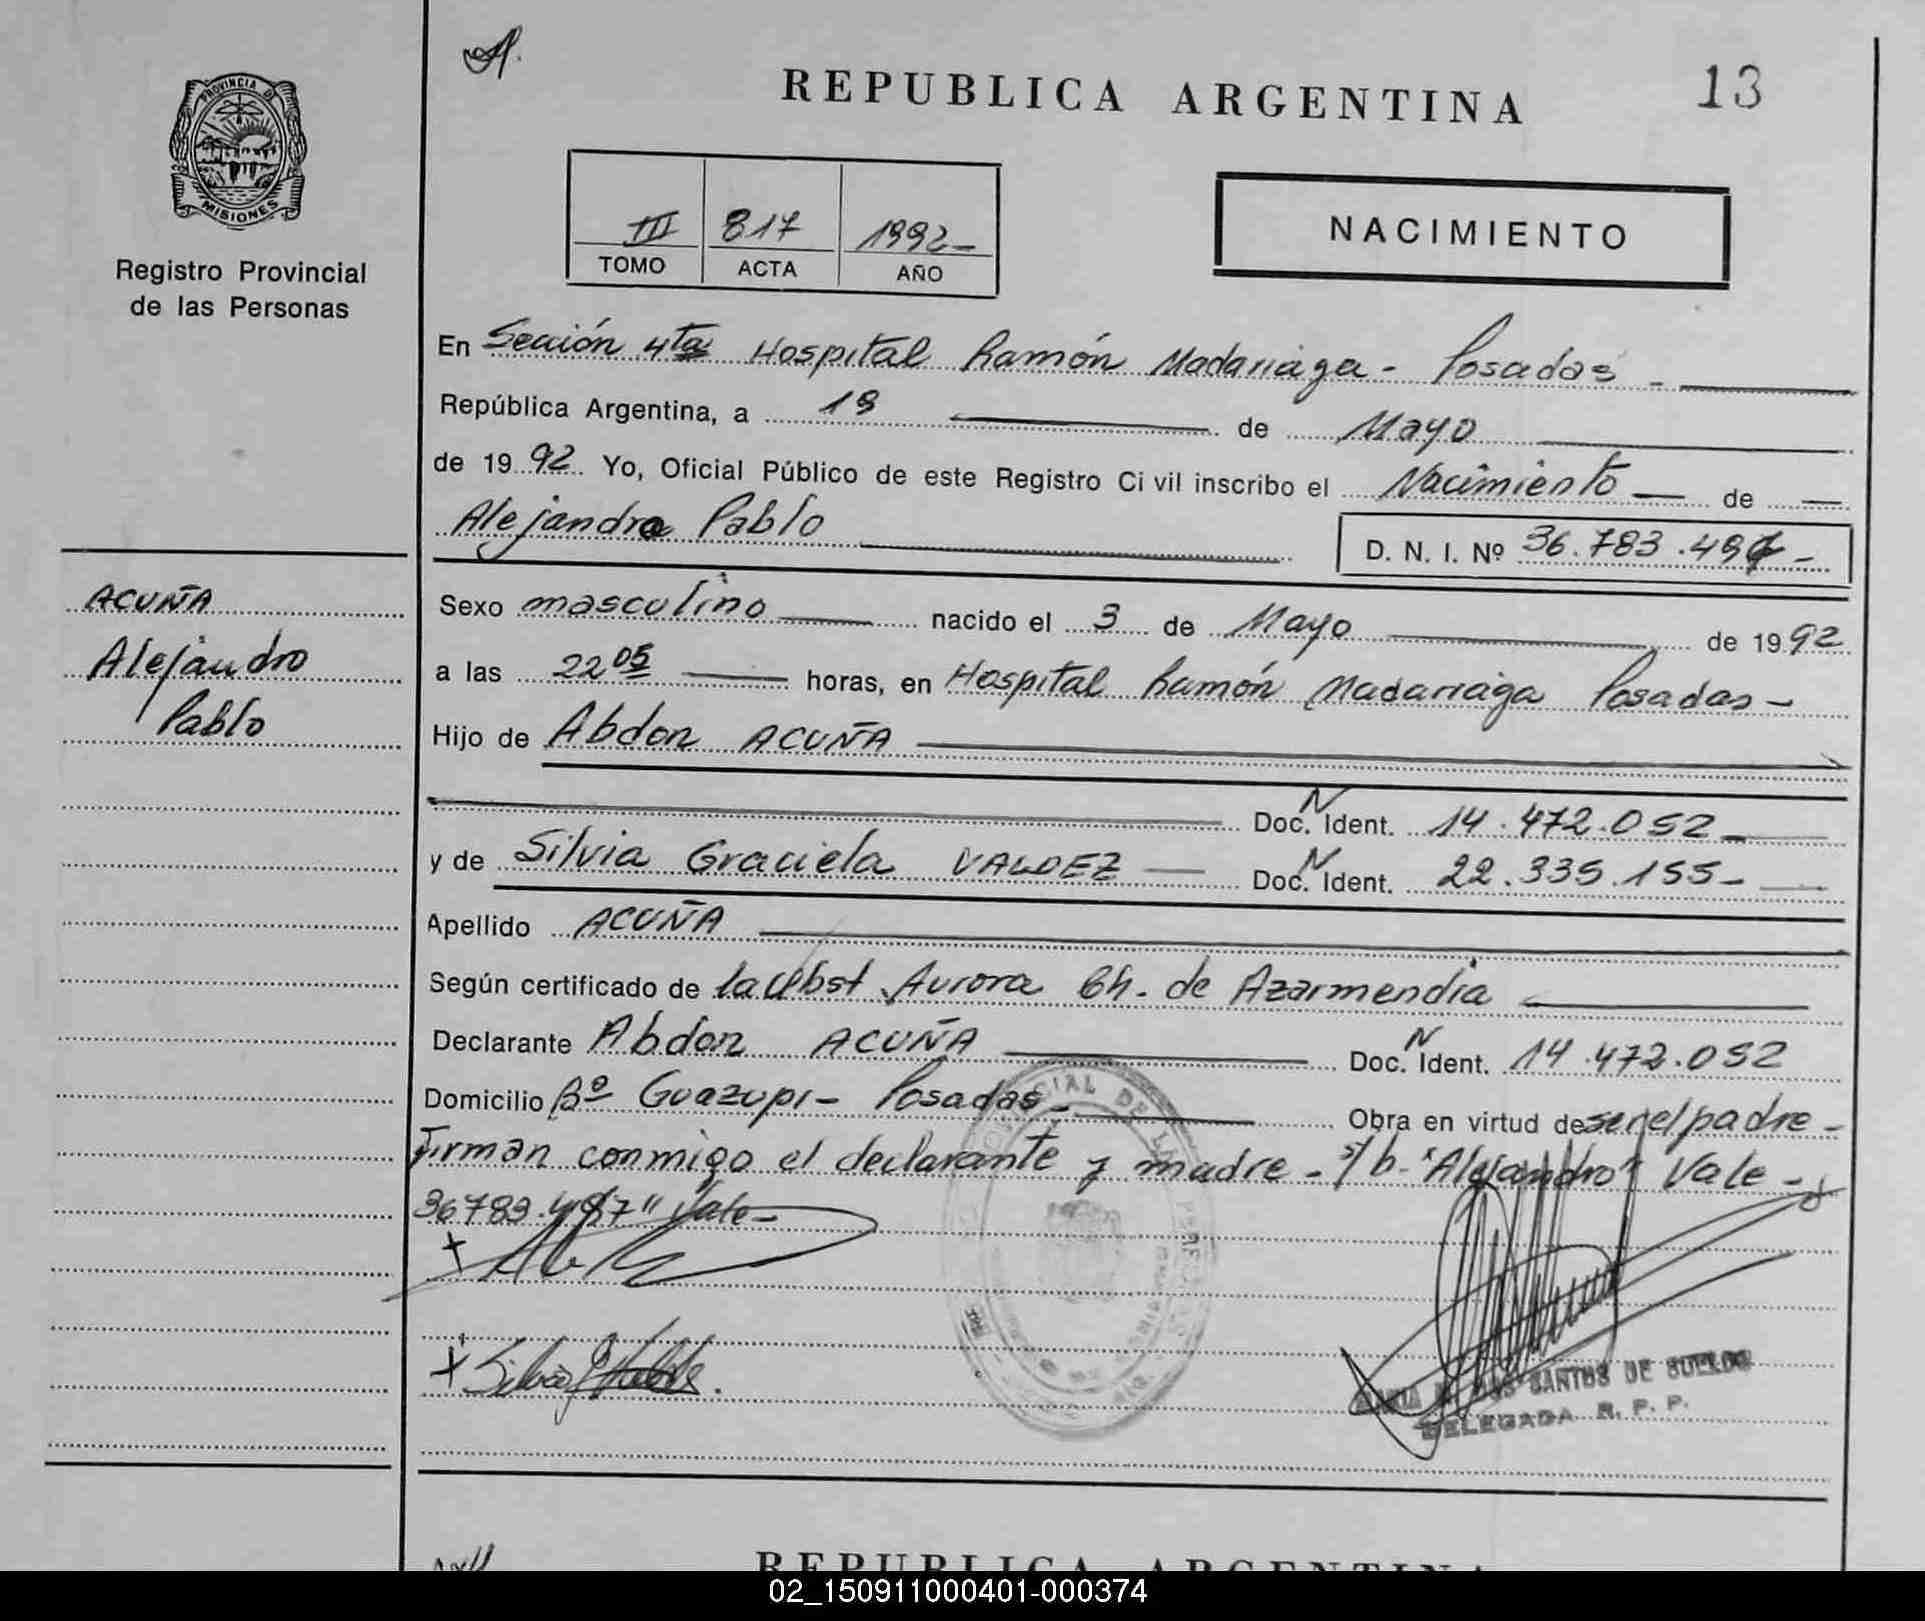 A.
REPUBLICA ARGENTINA
13
PROVINCIA DE
MISIONES
Registro Provincial
de las Personas
III 817 1992-
TOMO ACTA AÑO
NACIMIENTO
En Sección 4ta Hospital Ramón Madariaga - Posadas -
República Argentina, a 19 de Mayo
de 1992 Yo, Oficial Público de este Registro Civil inscribo el Nacimiento de
Alejandro Pablo
D. N. I. Nº 36.783.497-
ACUÑA
Alejandro
Pablo
Sexo masculino nacido el 3 de Mayo de 1992
a las 22 05 horas, en Hospital Ramón Madariaga Posadas -
Hijo de Abdon ACUÑA
Doc. N Ident. 14.472.052-
y de Silvia Graciela VALDEZ Doc. N Ident. 22.335.155-
Apellido ACUÑA
Según certificado de la Obst Aurora Ch. de Azarmendia
Declarante Abdon ACUÑA Doc. N Ident. 14.472.052
Domicilio Bº Guazupi - Posadas - Obra en virtud de ser el padre -
Firman conmigo el declarante y madre - s/b. "Alejandro" Vale -
36783.497" Vale -
SANTOS DE
DELEGADA R. P. P.
REPUBLICA ARGENTINA
02_150911000401-000374